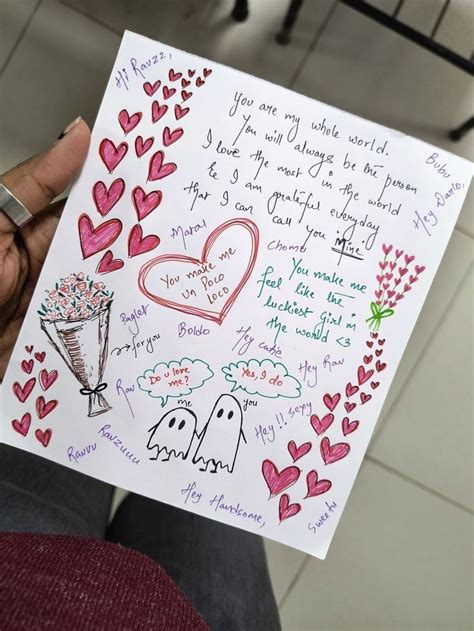 Hi Ravzz,
You are my whole world.
You will always be the person
I love the most in the world
& I am grateful everyday
that I can call you Mine
Bubu
Hey Darlo,
Matal
Chomu
You make me
un Poco
loco
You make me
feel like the
luckiest girl in
the world <3
Paglet
for you
Boldo
Hey cutie
Hey Rav
Do u love
me?
Yes, I do
me
you
Rav
Hey!! sexy
Ravuu
Ravzuuu
Hey Handsome,
Sweetu